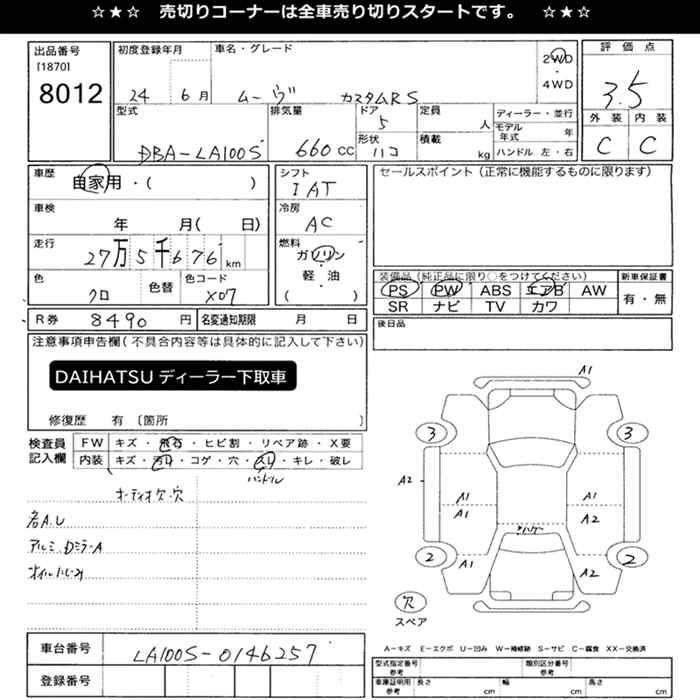 ☆★☆ 売切りコーナーは全車売り切りスタートです。 ☆★☆
出品番号
[1870]
8012
初度登録年月
24 6月
車名・グレード
ムーヴ カスタムRS
2WD
・
4WD
評価点
3.5
外装 内装
C C
型式
DBA-LA100S
排気量
660cc
ドア
5
形状
ハコ
定員
人
積載
kg
ディーラー・並行
モデル年式 年
ハンドル 左・右
車歴
自家用・( )
シフト
IAT
セールスポイント(正常に機能するものに限ります)
車検
年 月( 日)
冷房
AC
走行
27万5千676km
燃料
ガソリン
・
軽・油
( )
色
クロ
色替
色コード
X07
装備品(純正品に限り○をつけてください)
PS PW ABS エアB AW
SR ナビ TV カワ
新車保証書
有・無
R券 8490円
名変通知期限 月 日
後日品
注意事項申告欄(不具合内容等は具体的に記入して下さい)
DAIHATSU ディーラー下取車
修復歴 有〔箇所 〕
検査員記入欄
FW キズ・飛石・ヒビ割・リペア跡・X要
内装 キズ・汚れ・コゲ・穴・スレ・キレ・破レ
ハンドル
オーディオ欠.穴
各A.U
アルミ.Dミラ-A
オイルにじみ
A1
3 3
A2
A1 A1
A1 A2
ハゲ
2 2
A1 A2
欠
スペア
車台番号 LA100S-0146257
登録番号
A-キズ E-エクボ U-凹み W-補修跡 S-サビ C-腐食 XX-交換済
型式指定番号 参考
類別区分番号 参考
車庫証明用 参考
長さ cm 幅 cm 高さ cm